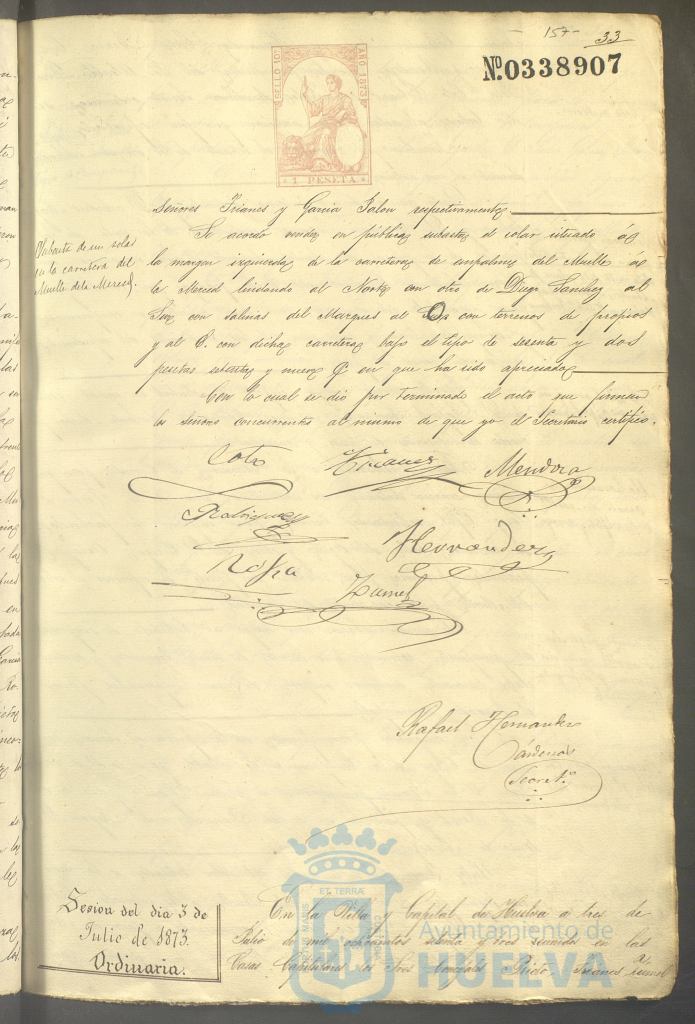 - 157 -
33
Nº.0338907
SELLO 10º
AÑO 1873
1 PESETA
Señores Trianes y Garcia Jalon respectivamente
Subasta de un solar
en la carretera del
Muelle de la Merced.
Se acordó vender en pública subasta el solar situado á
la margen izquierda de la carretera de empalme del Muelle á
la Merced lindando al Norte con otro de Diego Sanchez al
Sur con Salinas del Marques al O. con terrenos de propios
y al E. con dicha carretera bajo el tipo de sesenta y dos
pesetas setenta y nueve en que ha sido apreciado
Con lo cual se dió por terminado el acto que firman
los señores concurrentes al mismo de que yo el Secretario certifico.
Coto Trianes Mendoza
Rodriguez
Hernandez
Rafael Hernandez
Cárdenas
Secretº
Sesion del dia 3 de
Julio de 1873.
Ordinaria.
En la Villa y Capital de Huelva a tres de
Julio de mil ochocientos setenta y tres reunidos en las
Casas Capitulares los Sres Concejales Trianes
ET TERRAE
Ayuntamiento de
HUELVA